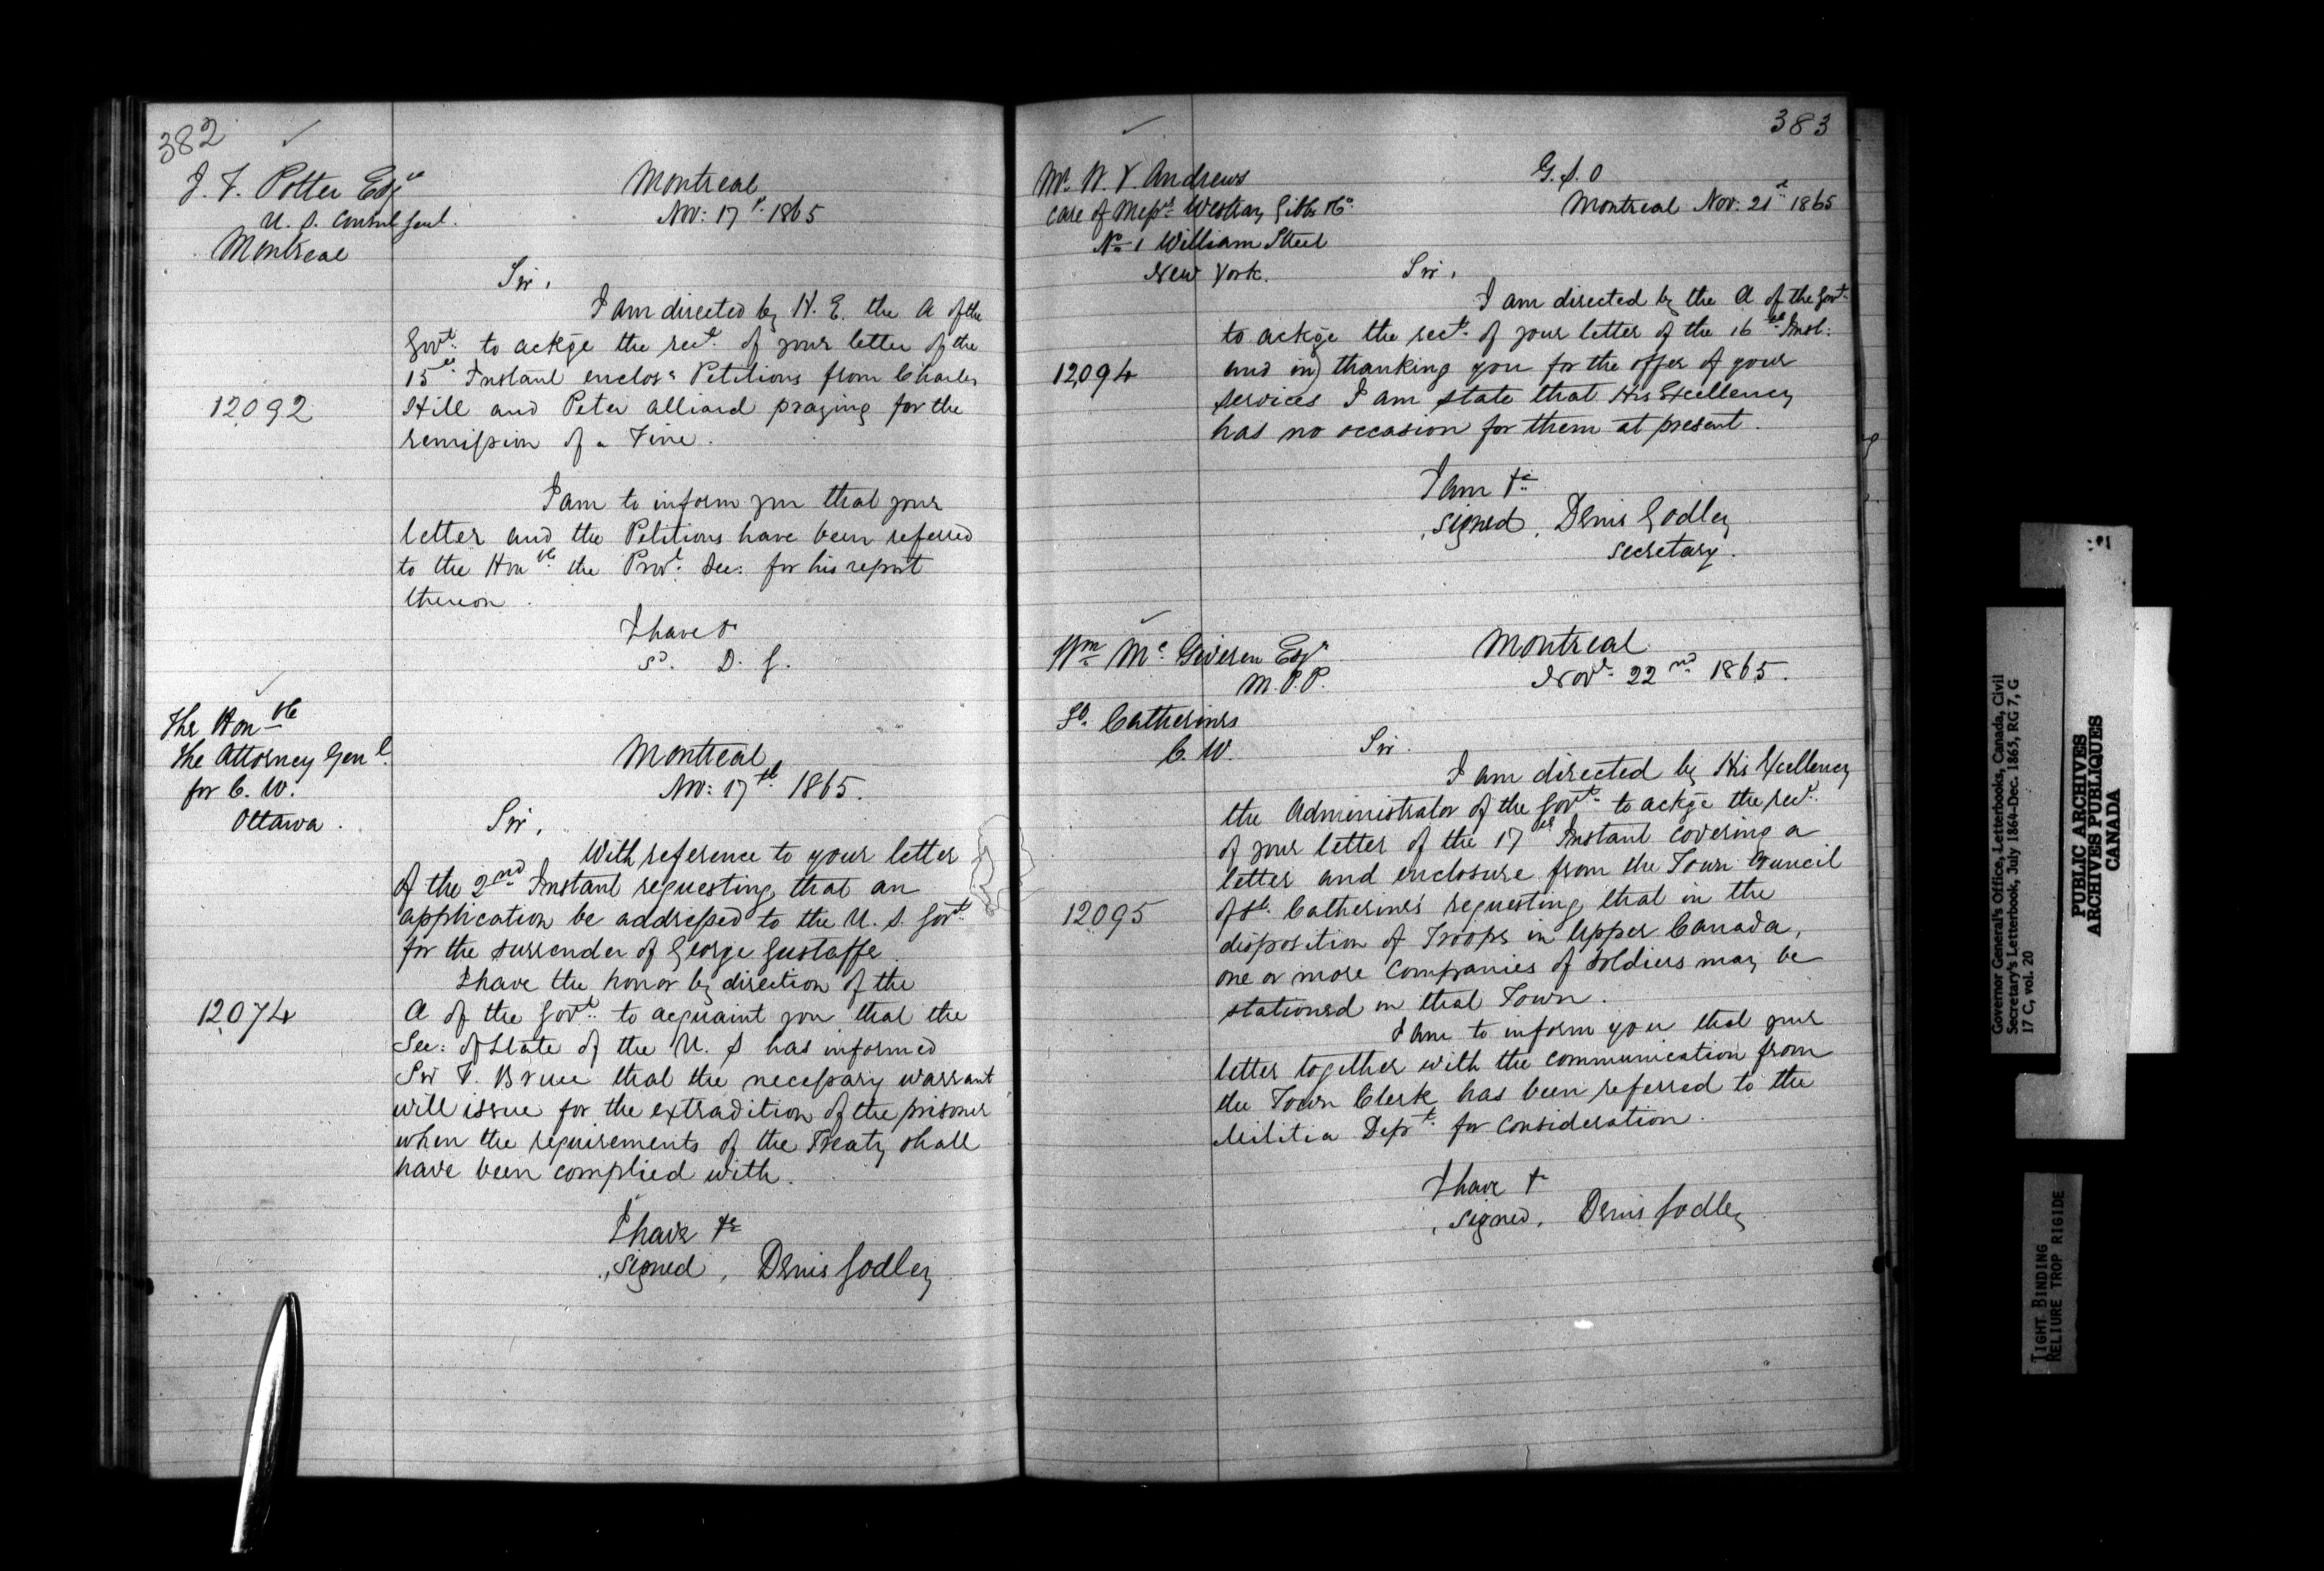 382
J. F. Potter Esqre
U. S. Consul Genl.
Montreal
Montreal
Nov: 17th 1865
Sir,
I am directed by H. E. the A of the
Govt. to ackge the rect. of your letter of the
15th Instant enclosg Petitions from Charles
12092
Hill and Peter Alliard praying for the
remission of a Fine.
I am to inform you that your
letter and the Petitions have been referred
to the Honble the Provl. Sec: for his report
thereon.
I have &
Sd. D. G.
The Honble
The Attorney Genl.
for C. W.
Ottawa.
Montreal
Nov: 17th 1865.
Sir,
With reference to your letter
of the 2nd Instant requesting that an
application be addressed to the U. S. Govt.
for the surrender of George Gustaffe.
I have the honor by direction of the
12074
A of the Govt. to acquaint you that the
Sec: of State of the U. S has informed
Sir F. Bruce that the necessary warrant
will issue for the extradition of the prisoner
when the requirements of the Treaty shall
have been complied with.
I have &c
signed, Denis Godley
383
Mr. W. Y. Andrews
care of Messrs Westray Gibbs &Co.
No 1 William Street
New York.
G. S. O
Montreal Nov. 21st 1865
Sir,
I am directed by the A of the Govt.
to ackge the rect. of your letter of the 16th Inst:
12094
and in) thanking you for the offer of your
services I am state that His Excellency
has no occasion for them at present.
I am &c
signed, Denis Godley
Secretary.
Wm. Mc. Giveren Esqr
M.P.P.
St. Catherines
C. W.
Montreal
Novr. 22nd 1865.
Sir.
I am directed by His Excellency
the Administrator of the Govt. to ackge the rect.
of your letter of the 17th Instant covering a
letter and enclosure from the Town Council
12095
of St. Catherine's requesting that in the
disposition of Troops in Upper Canada,
one or more Companies of Soldiers may be
stationed in that Town.
I am to inform you that your
letter together with the communication from
the Town Clerk has been referred to the
Militia Dept. for consideration.
I have &c
signed, Denis Godley
Governor General's Office, Letterbooks, Canada, Civil
Secretary's Letterbook, July 1864-Dec. 1865, RG 7, G
17 C, vol. 20
PUBLIC ARCHIVES
ARCHIVES PUBLIQUES
CANADA
TIGHT BINDING
RELIURE TROP RIGIDE